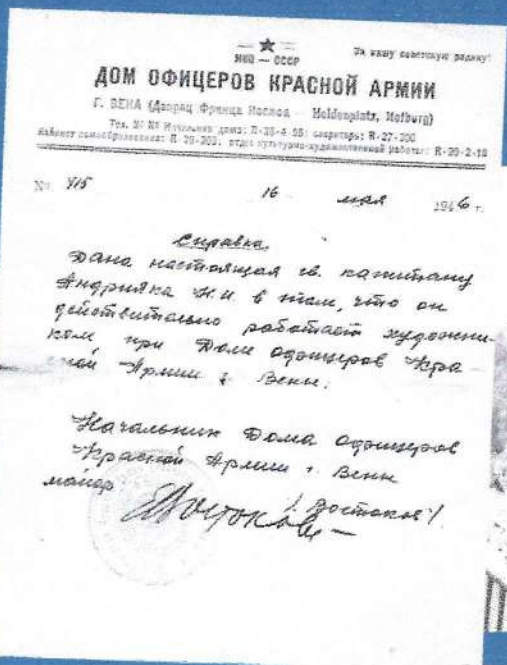 НКО — СССР
За нашу советскую родину!
ДОМ ОФИЦЕРОВ КРАСНОЙ АРМИИ
Г. ВЕНА (Дворец Франца Иосифа — Heldenplatz, Hofburg)
Тел. №№ Начальник дома: R-28-4-95; секретарь: R-27-300
Кабинет самообразования: R 29-203, отдел культурно-художественной работы: R-29-2-18
№ 415 16 мая 1946 г.
Справка
Дана настоящая гв. капитану
Андрияка Н.И. в том, что он
действительно работает художни-
ком при Доме офицеров Кра
сной Армии г. Вены.
Начальник Дома офицеров
Красной Армии г. Вены
майор
/Востоков/